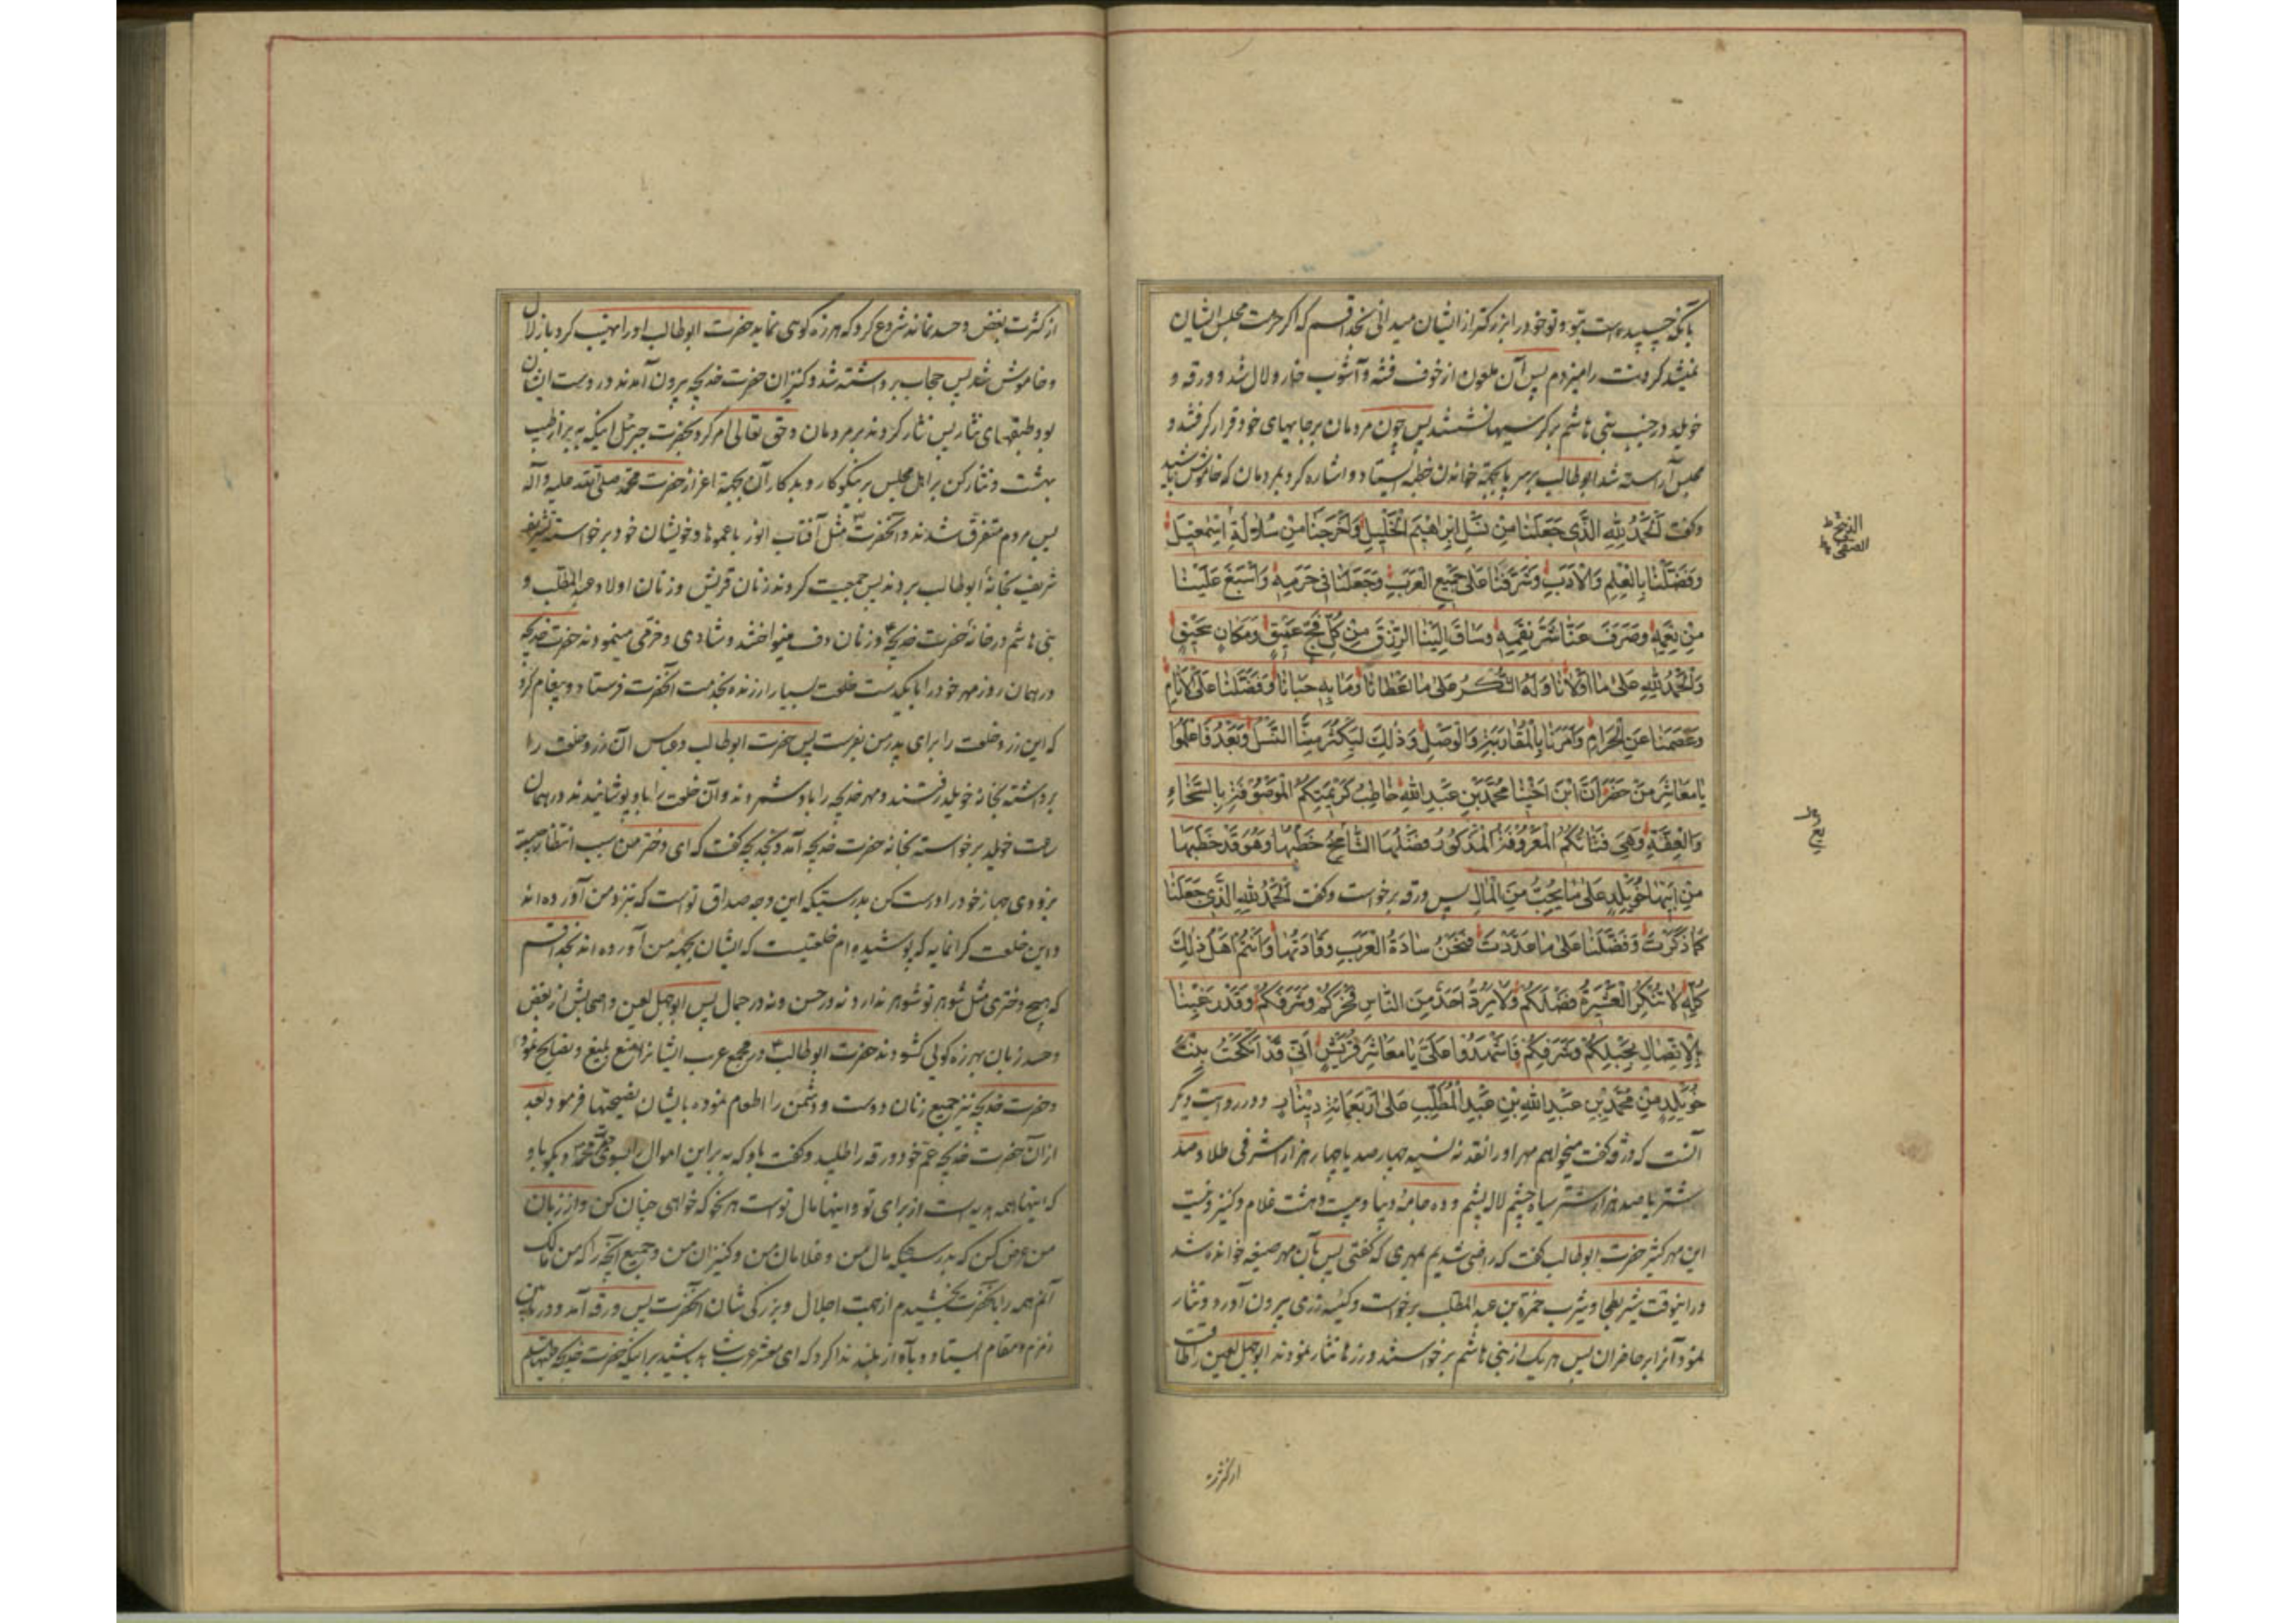 وخود را بزرکتر از ایشان میدانی بخدا قسم که اکر حرمت مجلس ایشان
نمیشد کردنت را میزدم پس آن ملعون از خوف فتنه و آشوب خوار و لال شد و ورقه و
خویلد در جنب بنی هاشم بر کرسیها نشستند پس چون مردمان بر جایهای خود قرار کرفتند و
مجلس آراسته شد ابوطالب بر سر پا بجهة خواندن خطبه ایستاد و اشاره کرد بمردمان که خاموش باشید
وکفت اَلْحَمْدُ لِلّٰهِ الَّذی جَعَلَنا مِنْ نَسْلِ اِبْراهیمَ الْخَلیلِ وَاَخْرَجَنا مِنْ سُلالَةِ اِسْمٰعیلَ
وَفَضَّلَنا بِالْعِلْمِ وَالْاَدَبِ وَشَرَّفَنا عَلیٰ جَمیعِ الْعَرَبِ وَجَعَلَنا فی حَرَمِهِ وَاَسْبَغَ عَلَیْنا
مِنْ نِعَمِهِ وَصَرَفَ عَنّا شَرَّ نِقَمِهِ وَساقَ اِلَیْنَا الرِّزْقَ مِنْ کُلِّ فَجٍّ عَمیقٍ وَمَکانٍ سَحیقٍ
وَالْحَمْدُ لِلّٰهِ عَلیٰ ما اَوْلانا وَلَهُ الشُّکْرُ عَلیٰ ما اَعْطانا وَما بِهِ حَبانا وَفَضَّلَنا عَلَی الْاَنامِ
وَعَصَمَنا عَنِ الْحَرامِ وَاَمَرَنا بِالْمُقارَبَةِ وَالْوَصْلِ وَذٰلِکَ لِیَکْثُرَ مِنَّا النَّسْلُ وَبَعْدُ فَاعْلَمُوا
یا مَعاشِرَ مَنْ حَضَرَ اَنَّ ابْنَ اَخینا مُحَمَّدَ بْنَ عَبْدِ اللّٰهِ خاطِبٌ کَریمَتَکُمُ الْمَوْصُوفَةَ بِالسَّخاءِ
وَالْعِفَّةِ وَهِیَ فَتاتُکُمُ الْمَعْرُوفَةُ الْمَذْکُورُ فَضْلُهَا الشّامِخُ خَطْبُها وَهُوَ قَدْ خَطَبَها
مِنْ اَبیها خُوَیْلِدٍ عَلیٰ ما یُحِبُّ مِنَ الْمالِ پس ورقه برخواست وکفت اَلْحَمْدُ لِلّٰهِ الَّذی جَعَلَنا
کَما ذَکَرْتَ وَفَضَّلَنا عَلیٰ ما عَدَّدْتَ فَنَحْنُ سادَةُ الْعَرَبِ وَقادَتُها وَاَنْتُمْ اَهْلُ ذٰلِکَ
کُلِّهِ لا تُنْکِرُ الْعَشیرَةُ فَضْلَکُمْ وَلا یَرُدُّ اَحَدٌ مِنَ النّاسِ فَخْرَکُمْ وَشَرَفَکُمْ وَقَدْ رَغِبْنا
بِالْاِتِّصالِ بِحَبْلِکُمْ وَشَرَفِکُمْ فَاشْهَدُوا عَلَیَّ یا مَعاشِرَ قُرَیْشٍ اَنّی قَدْ اَنْکَحْتُ بِنْتَ
خُوَیْلِدٍ مِنْ مُحَمَّدِ بْنِ عَبْدِ اللّٰهِ بْنِ عَبْدِ الْمُطَّلِبِ عَلیٰ اَرْبَعَمِائَةِ دینارٍ ودر روایت دیکر
آنست که ورقه کفت میخواهم مهر او را نقد نه نسیه چهار صد یا چهار هزار اشرفی طلا و صد
شتر یا صد هزار شتر سیاه چشم لال پشم و ده جامۀ دیبا و بیست وهشت غلام و کنیز ونیست
این مهر کثیر حضرت ابوطالب کفت که راضی شدیم بمهری که کفتی پس بآن مهر صیغه خوانده شد
ودر اینوقت شیر بطحا و یثرب حمزة بن عبد المطلب برخواست و کیسه زری بیرون آورد ونثار
نمود آنرا بر حاضران پس هر یک از بنی هاشم برخواستند و زرها نثار نمودند ابوجهل لعین را طاقت
از کثرت
از کثرت بغض و حسد نماند شروع کرد که هرزه کوی نماید حضرت ابوطالب او را نهیب کرد باز لال
وخاموش شد پس حجاب برداشته شد و کنیزان حضرت خدیجه بیرون آمدند و در دست ایشان
بود طبقهای نثار پس نثار کردند بر مردمان وحق تعالی امر کرد بحضرت جبرئیل اینکه ببر از طیب
بهشت ونثار کن بر اهل مجلس بر نیکوکار و بدکار آن بجهة اعزاز حضرت محمد صلی الله علیه وآله
پس مردم متفرق شدند و آنحضرت مثل آفتاب انور با عموها وخویشان خود برخواسته
شریف بخانۀ ابوطالب بردند پس جمعیت کردند زنان قریش وزنان اولاد عبدالمطلب و
بنی هاشم در خانۀ حضرت خدیجه وزنان دف مینواختند وشادی وخرمی مینمودند حضرت خدیجه
در همان روز مهر خود را با یکدست خلعت بسیار ارزنده بخدمت آنحضرت فرستاد و پیغام کرد
که این زر و خلعت را برای پدر من بفرست پس حضرت ابوطالب وعباس آن زر و خلعت را
برداشته بخانۀ خویلد رفتند ومهر خدیجه را باو شمردند وآن خلعت را باو پوشانیدند در همان
ساعت خویلد برخواسته بخانۀ حضرت خدیجه آمد و بخدیجه کفت که ای دختر من سبب انتظار چیست
بزودی جهاز خود را درست کن بدرستیکه این وجه صداق تو است که بنزد من آورده اند
واین خلعت کرانمایه که پوشیده ام خلعتیست که ایشان بجهة من آورده اند بخدا قسم
که هیچ دختری مثل شوهر تو شوهر ندارد نه در حسن ونه در جمال پس ابوجهل لعین واصحابش از بغض
وحسد زبان بهرزه کویی کشودند حضرت ابوطالب در مجمع عرب ایشانرا منع بلیغ ونصایح نمود
وحضرت خدیجه نیز جمیع زنان دوست ودشمن را اطعام نموده بایشان نصیحتها فرمود بعد
از آن حضرت خدیجه عم خود ورقه را طلبید وکفت باو که ببر این اموال را بسوی محمد وبکو باو
که اینها همه هدیه است از برای تو واینها مال تو است هر نحو که خواهی چنان کن واز زبان
من عرض کن که بدرستیکه مال من وغلامان من وکنیزان من وجمیع آنچه را که من مالک
آنم همه را بآنحضرت بخشیدم از جهت اجلال وبزرکی شان آنحضرت پس ورقه آمد ودر میان
زمزم ومقام ایستاد وبآواز بلند ندا کرد که ای معشر عرب شاهد باشید براینکه حضرت خدیجه